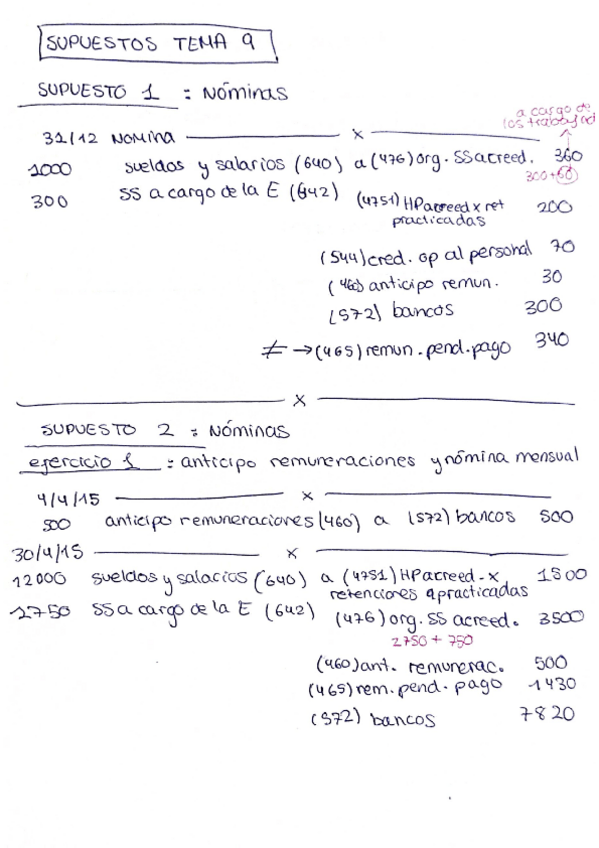 SUPUESTOS TEMA 9
SUPUESTO 1 : NÓMINAS
a cargo de
los trabajad
31/12 NOMINA x
1000 sueldos y salarios (640) a (476) org. SS acreed. 360
300+60
300 SS a cargo de la E (642) (4751) HP acreed x ret 200
practicadas
(544) cred. op al personal 70
(460) anticipo remun. 30
(572) bancos 300
≠ → (465) remun. pend. pago 340
x
SUPUESTO 2 : NÓMINAS
ejercicio 1 : anticipo remuneraciones y nómina mensual
4/4/15 x
500 anticipo remuneraciones (460) a (572) bancos 500
30/4/15 x
12000 sueldos y salarios (640) a (4751) HP acreed. x 1500
retenciones practicadas
2750 SS a cargo de la E (642) (476) org. SS acreed. 3500
2750 + 750
(460) ant. remunerac. 500
(465) rem. pend. pago 1430
(572) bancos 7820